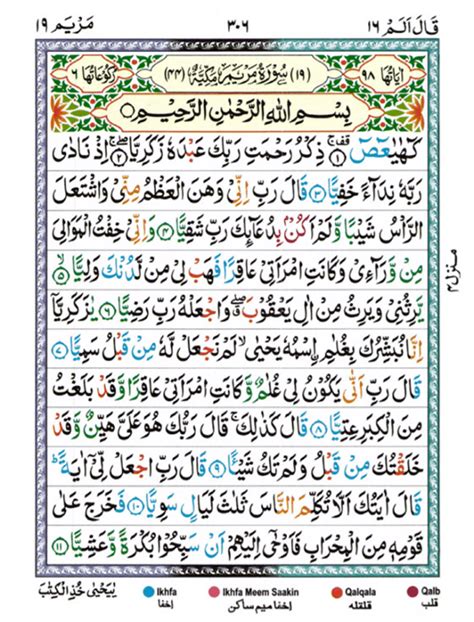 قَالَ اَلَمْ ١٦ ٣٠٦ مَرْيَم ١٩
اٰيَاتُهَا ٩٨ (١٩) سُوْرَةُ مَرْيَمَ مَكِّيَّةٌ (٤٤) رُكُوْعَاتُهَا ٦
بِسْمِ اللّٰهِ الرَّحْمٰنِ الرَّحِيْمِ
كٓهٰيٰعٓصٓ ۚ ١ ذِكْرُ رَحْمَتِ رَبِّكَ عَبْدَهٗ زَكَرِيَّا ۚ ٢ اِذْ نَادٰى
رَبَّهٗ نِدَآءً خَفِيًّا ٣ قَالَ رَبِّ اِنِّيْ وَهَنَ الْعَظْمُ مِنِّيْ وَاشْتَعَلَ
الرَّاْسُ شَيْبًا وَّلَمْ اَكُنْۢ بِدُعَآئِكَ رَبِّ شَقِيًّا ٤ وَاِنِّيْ خِفْتُ الْمَوَالِيَ
مِنْ وَّرَآءِيْ وَكَانَتِ امْرَاَتِيْ عَاقِرًا فَهَبْ لِيْ مِنْ لَّدُنْكَ وَلِيًّا ٥
يَّرِثُنِيْ وَيَرِثُ مِنْ اٰلِ يَعْقُوْبَ ۖ وَاجْعَلْهُ رَبِّ رَضِيًّا ٦ يٰزَكَرِيَّآ
اِنَّا نُبَشِّرُكَ بِغُلٰمِ اِسْمُهٗ يَحْيٰى ۙ لَمْ نَجْعَلْ لَّهٗ مِنْ قَبْلُ سَمِيًّا ٧
قَالَ رَبِّ اَنّٰى يَكُوْنُ لِيْ غُلٰمٌ وَّكَانَتِ امْرَاَتِيْ عَاقِرًا وَّقَدْ بَلَغْتُ
مِنَ الْكِبَرِ عِتِيًّا ٨ قَالَ كَذٰلِكَ ۚ قَالَ رَبُّكَ هُوَ عَلَيَّ هَيِّنٌ وَّقَدْ
خَلَقْتُكَ مِنْ قَبْلُ وَلَمْ تَكُ شَيْـًٔا ٩ قَالَ رَبِّ اجْعَلْ لِّيْٓ اٰيَةً ؕ
قَالَ اٰيَتُكَ اَلَّا تُكَلِّمَ النَّاسَ ثَلٰثَ لَيَالٍ سَوِيًّا ١٠ فَخَرَجَ عَلٰى
قَوْمِهٖ مِنَ الْمِحْرَابِ فَاَوْحٰٓى اِلَيْهِمْ اَنْ سَبِّحُوْا بُكْرَةً وَّعَشِيًّا ١١
منزل ٤
يٰيَحْيٰى خُذِ الْكِتٰبَ
Ikhfa اخفا
Ikhfa Meem Saakin اخفا میم ساکن
Qalqala قلقلہ
Qalb قلب